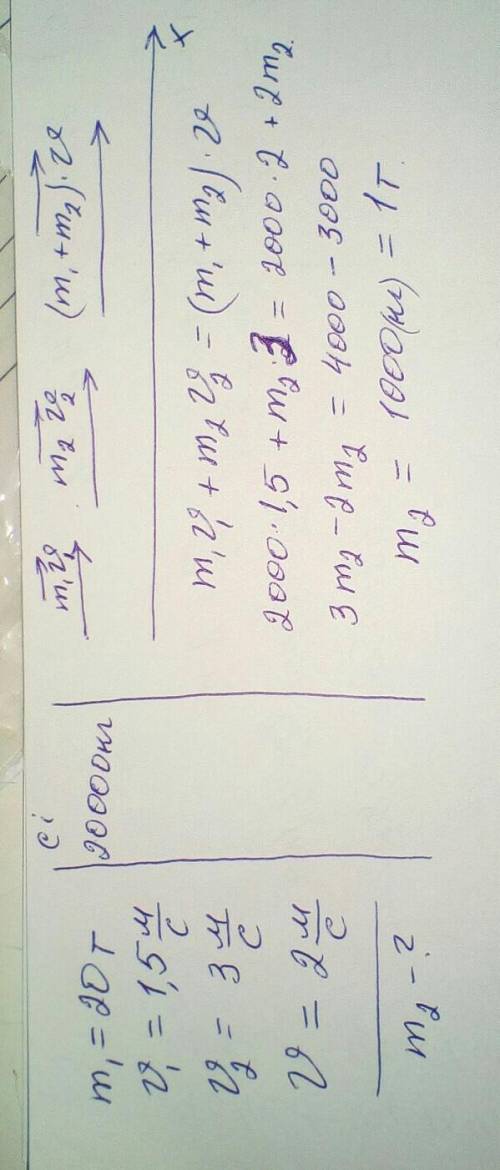 m₁ = 20 т
υ₁ = 1,5 м/с
υ₂ = 3 м/с
υ = 2 м/с
m₂ - ?
Сi
20000кг
m₁υ₁ m₂υ₂ (m₁ + m₂)·υ
x
m₁υ₁ + m₂υ₂ = (m₁ + m₂)·υ
2000·1,5 + m₂·3 = 2000·2 + 2m₂
3m₂ - 2m₂ = 4000 - 3000
m₂ = 1000(кг) = 1т.